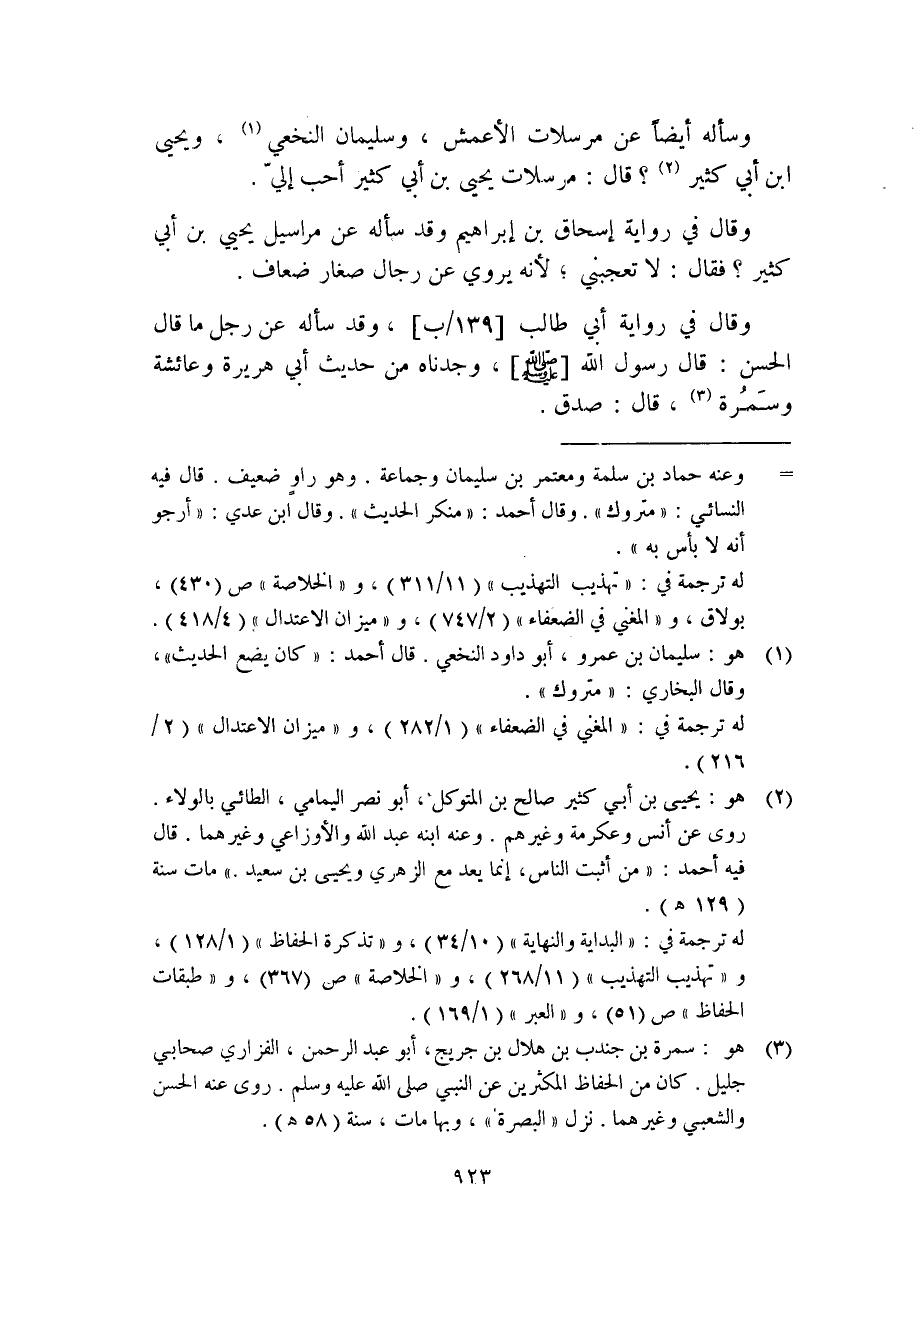 وسأله أيضاً عن مرسلات الأعمش ، وسليمان النخعي (١) ، ويحيى
ابن أبي كثير (٢) ؟ قال : مرسلات يحيى بن أبي كثير أحب إليّ .
وقال في رواية إسحاق بن إبراهيم وقد سأله عن مراسيل يحيى بن أبي
كثير ؟ فقال : لا تعجبني ؛ لأنه يروي عن رجال صغار ضعاف .
وقال في رواية أبي طالب [١٣٩/ب] ، وقد سأله عن رجل ما قال
الحسن : قال رسول الله [ﷺ] ، وجدناه من حديث أبي هريرة وعائشة
وسَمُرة (٣) ، قال : صدق .
= وعنه حماد بن سلمة ومعتمر بن سليمان وجماعة . وهو راوٍ ضعيف . قال فيه
النسائي : « متروك » . وقال أحمد : « منكر الحديث » . وقال ابن عدي : « أرجو
أنه لا بأس به » .
له ترجمة في : « تهذيب التهذيب » ( ٣١١/١١ ) ، و « الخلاصة » ص (٤٣٠) ،
بولاق ، و « المغني في الضعفاء » ( ٧٤٧/٢ ) ، و « ميزان الاعتدال » ( ٤١٨/٤ ) .
(١) هو : سليمان بن عمرو ، أبو داود النخعي . قال أحمد : « كان يضع الحديث» ،
وقال البخاري : « متروك » .
له ترجمة في : « المغني في الضعفاء » ( ٢٨٢/١ ) ، و « ميزان الاعتدال » ( ٢/
٢١٦ ) .
(٢) هو : يحيى بن أبي كثير صالح بن المتوكل ، أبو نصر اليمامي ، الطائي بالولاء .
روى عن أنس وعكرمة وغيرهم . وعنه ابنه عبد الله والأوزاعي وغيرهما . قال
فيه أحمد : « من أثبت الناس، إنما يعد مع الزهري ويحيى بن سعيد .» مات سنة
( ١٢٩ ه ) .
له ترجمة في : « البداية والنهاية » ( ٣٤/١٠) ، و « تذكرة الحفاظ » ( ١٢٨/١ ) ،
و « تهذيب التهذيب » ( ٢٦٨/١١ ) ، و « الخلاصة » ص (٣٦٧) ، و « طبقات
الحفاظ » ص (٥١) ، و « العبر » ( ١٦٩/١ ) .
(٣) هو : سمرة بن جندب بن هلال بن جريج، أبو عبد الرحمن ، الفزاري صحابي
جليل . كان من الحفاظ المكثرين عن النبي صلى الله عليه وسلم . روى عنه الحسن
والشعبي وغيرهما . نزل « البصرة » ، وبها مات ، سنة ( ٥٨ ه ) .
٩٢٣